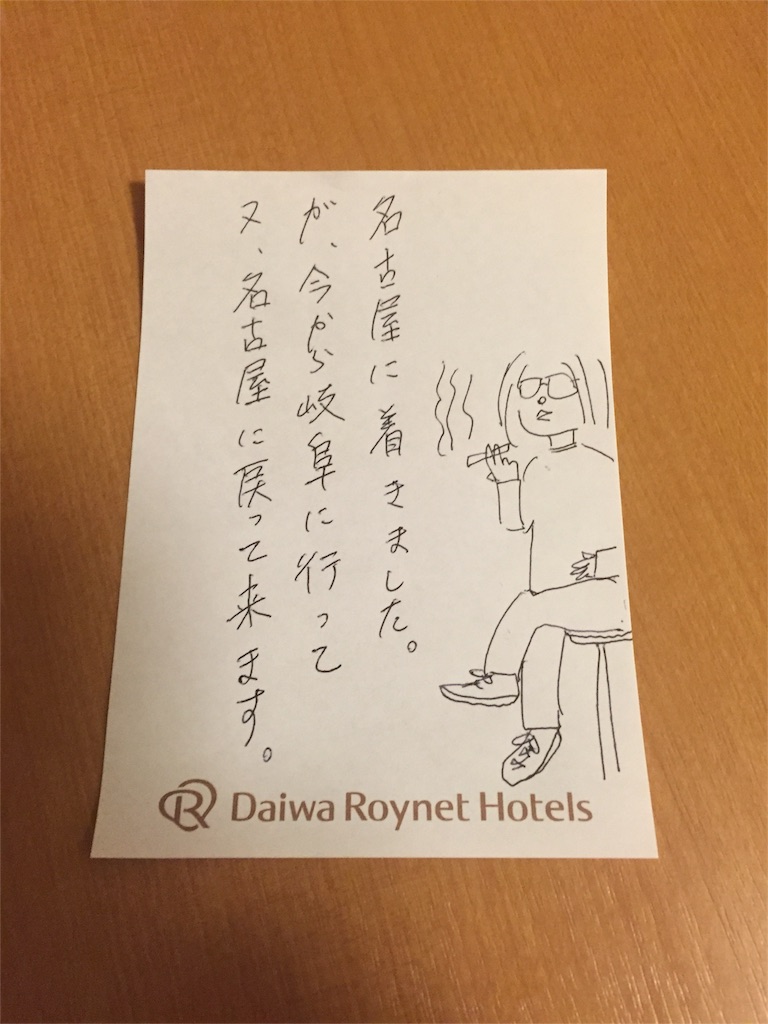 名古屋に着きました。
が、今から岐阜に行って
又、名古屋に戻って来ます。
Daiwa Roynet Hotels